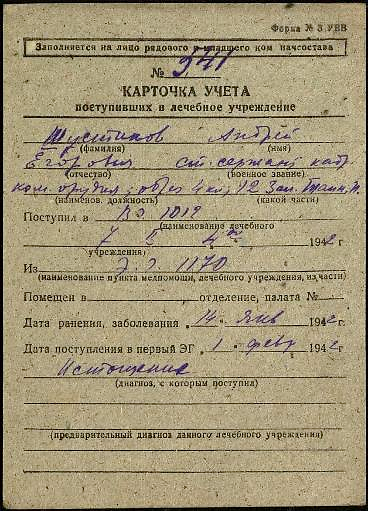 Форма № 3 УЕВ
Заполняется на лицо рядового и младшего ком начсостава
№ 941
КАРТОЧКА УЧЕТА
поступивших в лечебное учреждение
Шустиков Андрей
(фамилия) (имя)
Егорович ст. сержант кадр
(отчество) (военное звание)
ком. орудия
(наименов. должность) (какой части)
Поступил в ЭГ 1019
(наименование лечебного
7 II 1942 г
учреждения)
Из Э.Г. 1170
(наименование пункта медпомощи, лечебного учреждения, из части)
Помещен в отделение, палата №
Дата ранения, заболевания 14 янв 1942 г
Дата поступления в первый ЭГ 1 февр 1942 г
Истощение
(диагноз, с которым поступил)
(предварительный диагноз данного лечебного учреждения)